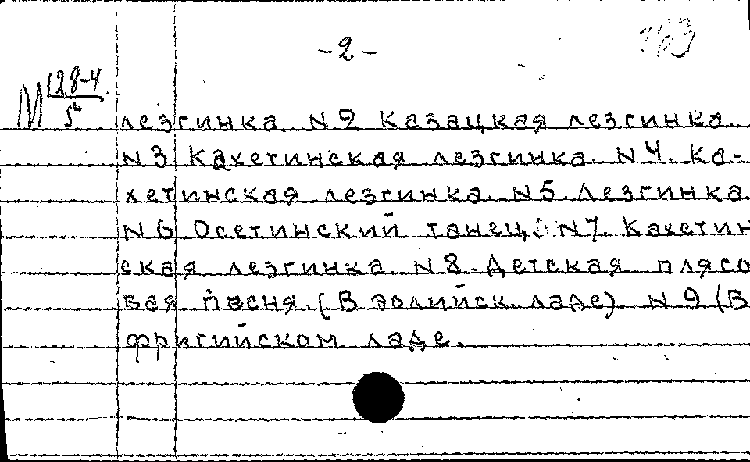 -2-
763
М 128-4
5²
лезгинка. N2 Казацкая лезгинка.
N3 Кахетинская лезгинка. N4. Ка-
хетинская лезгинка. N5. Лезгинка.
N6 Осетинский танец. N7. Кахетин
ская лезгинка. N8. Детская плясо
вая песня. (В эолийск. ладе) N9 (В
фригийском ладе.